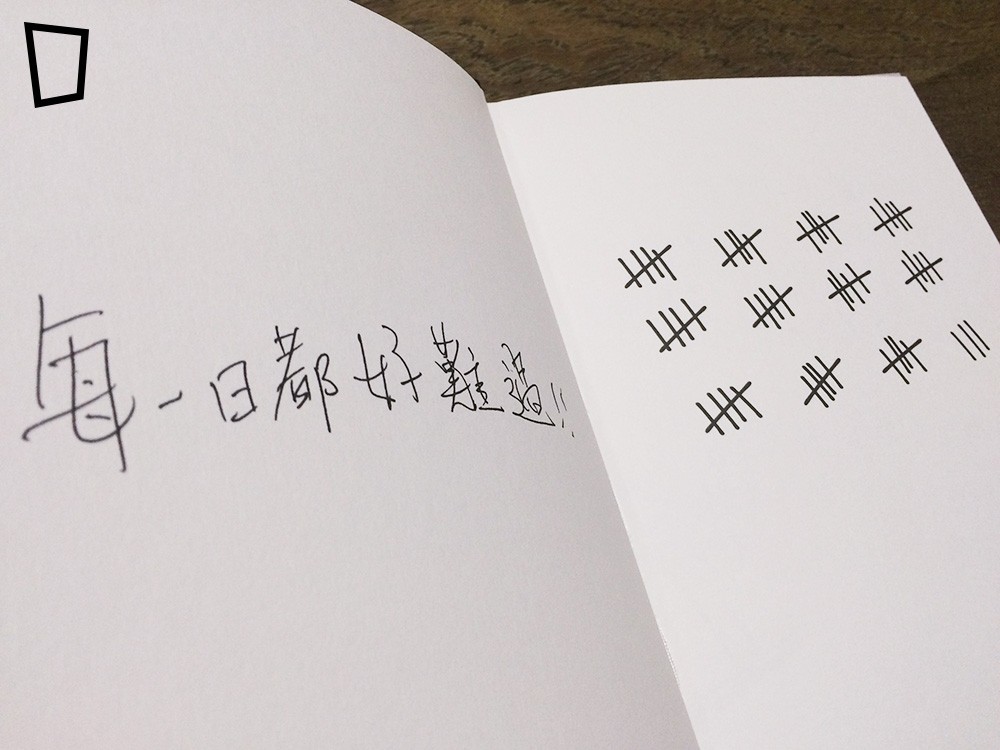 每一日都好難過!!